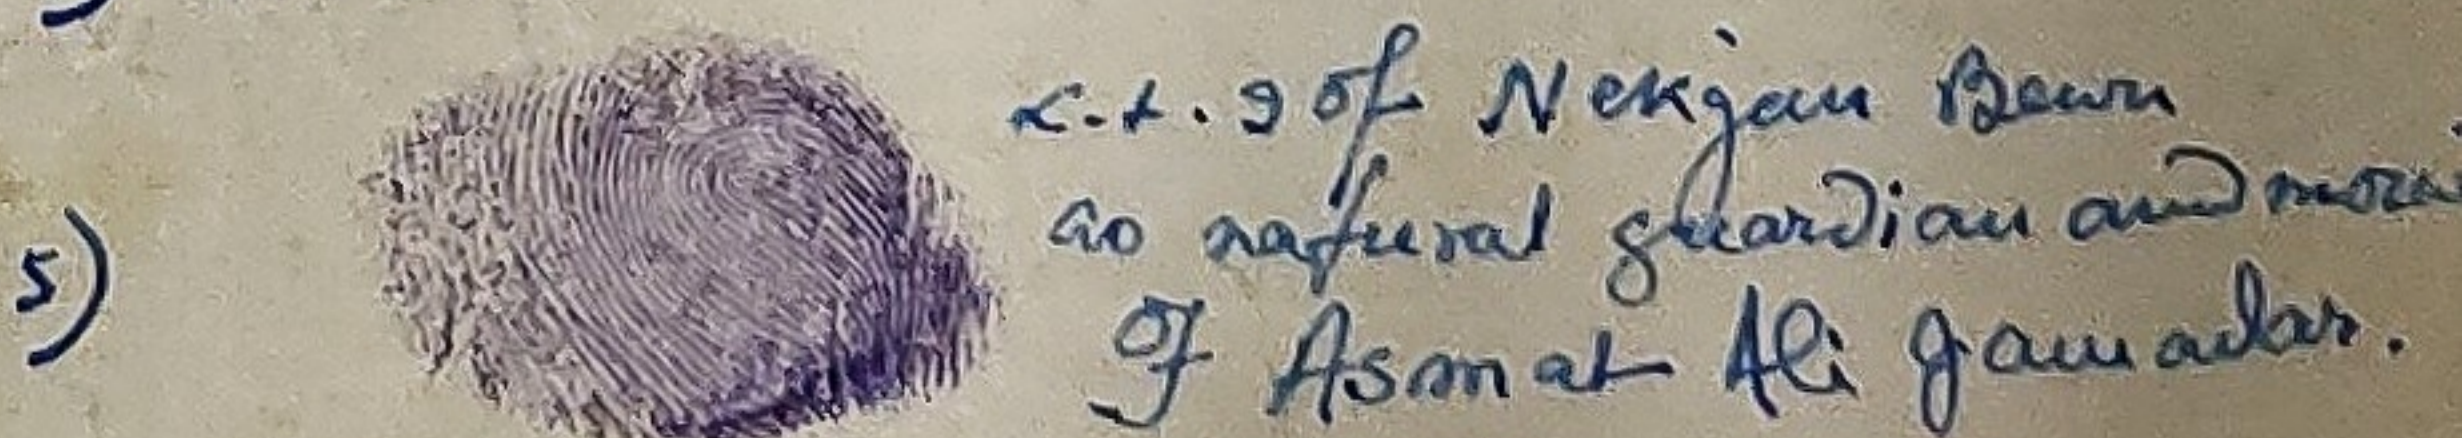 L.t.I of Nekjan Bewa
5) as natural guardian and
of Asmat Ali Jamadar.